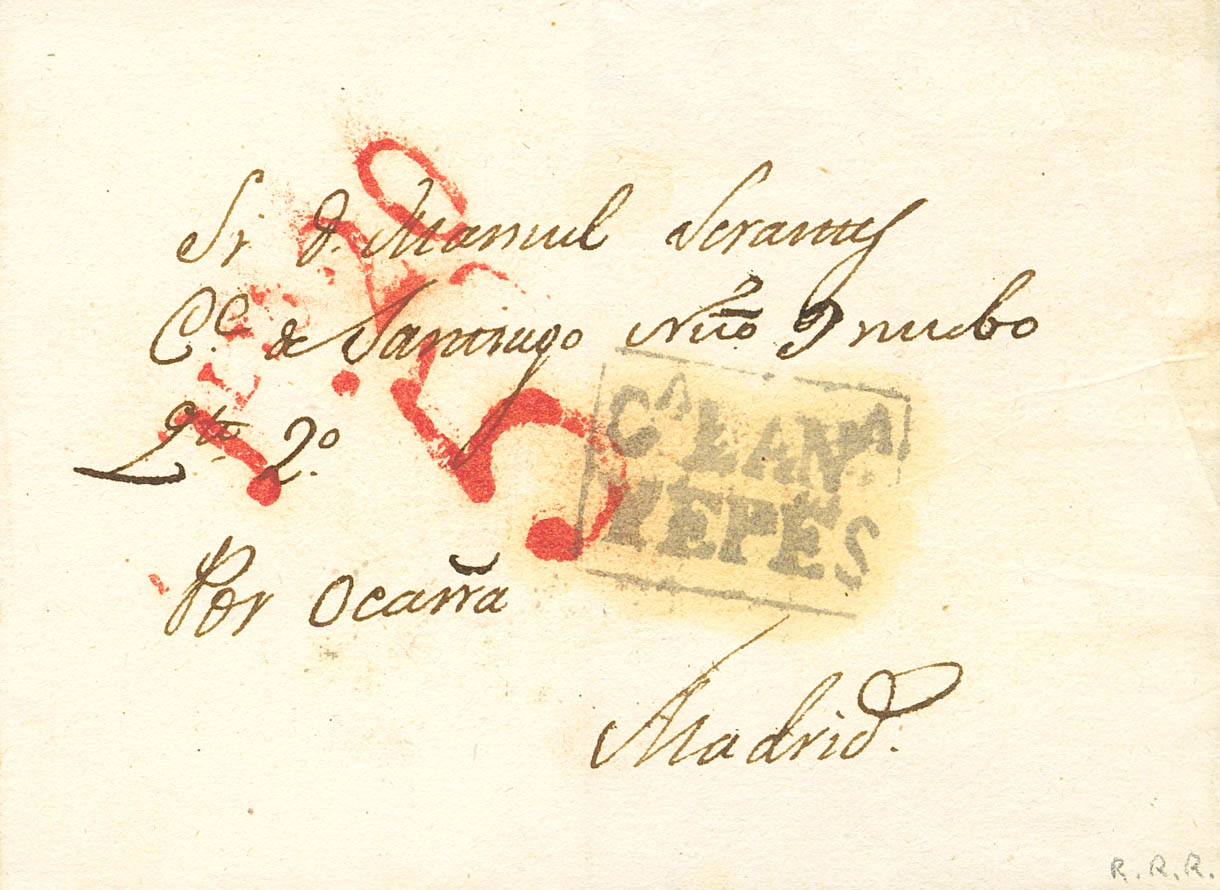 Sr. D. Manuel Serantes
C.e de Santiago Nuo 9 nuebo
Qto 2.o
Por Ocaña
Madrid.
CA LANA
YEPES
5
R. R. R.